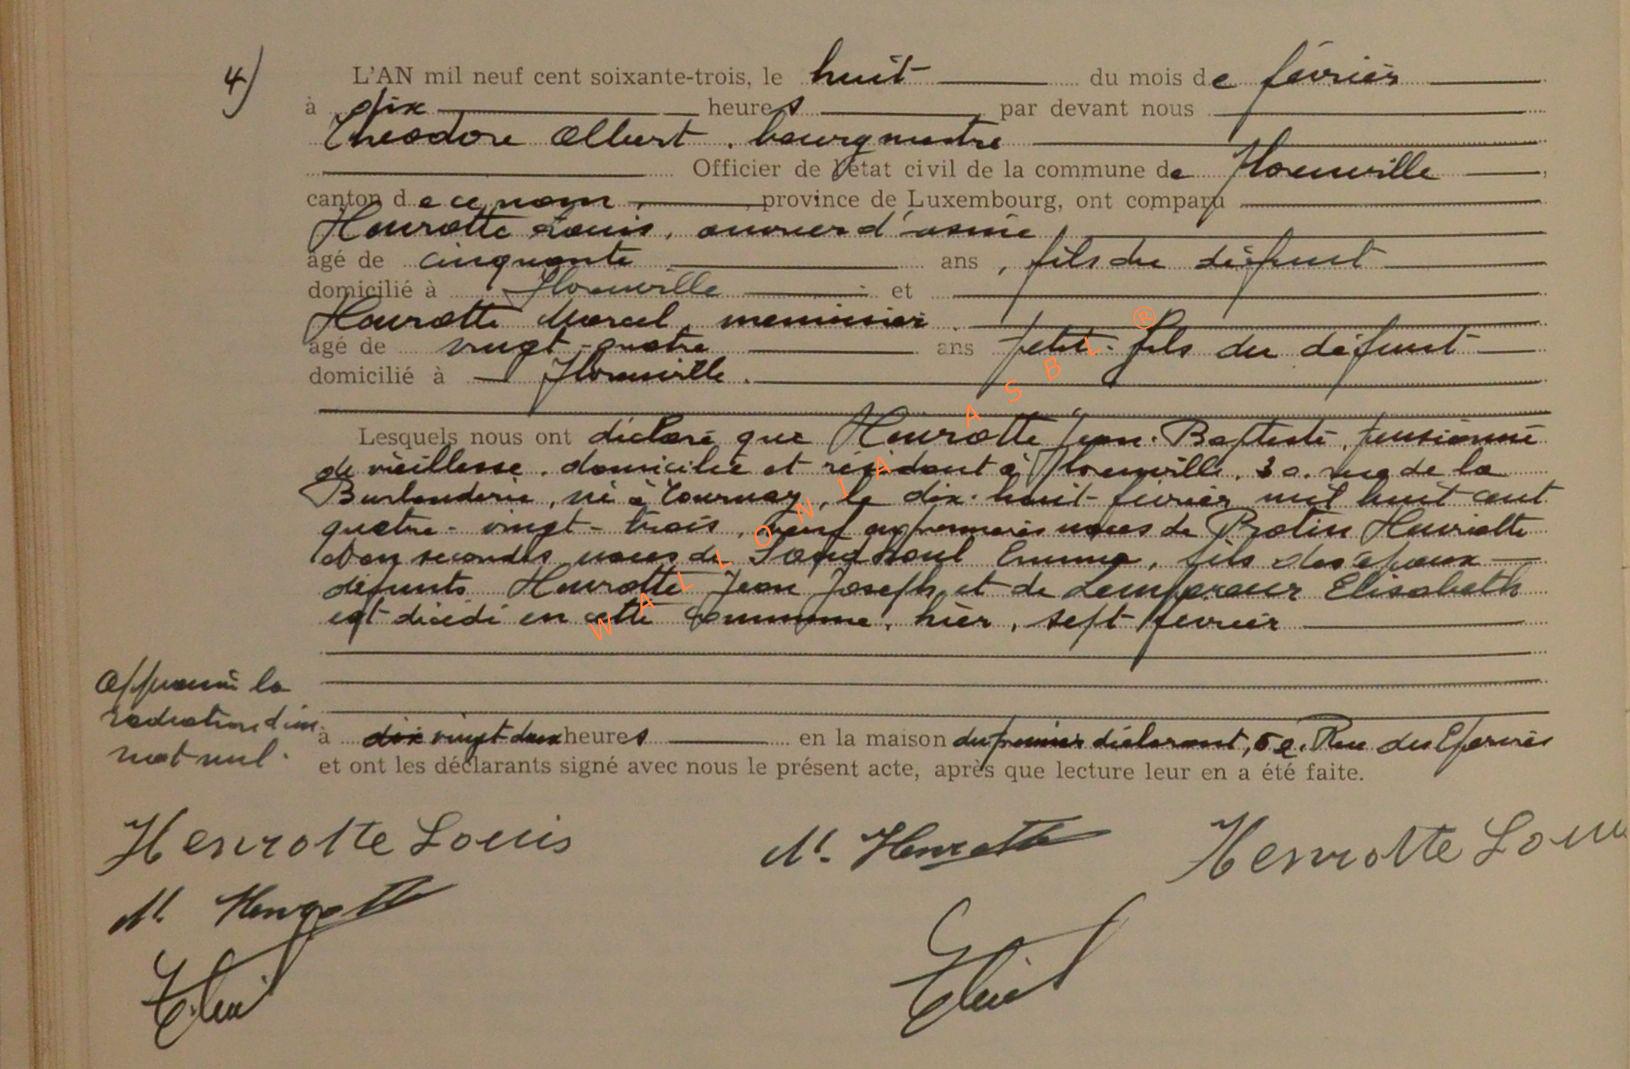 4)
L'AN mil neuf cent soixante-trois, le huit du mois de février
à dix heures par devant nous
Théodore Albert, bourgmestre
Officier de l'état civil de la commune de Florenville
canton de ce nom, province de Luxembourg, ont comparu
Henrotte Louis, ouvrier d'usine
âgé de cinquante ans, fils du défunt
domicilié à Florenville et
Henrotte Marcel, menuisier
âgé de vingt-quatre ans petit-fils du défunt
domicilié à Florenville.
Lesquels nous ont déclaré que Henrotte Jean-Baptiste, pensionné
de vieillesse, domicilié et résidant à Florenville, 30, rue de la
né à Tournay, le dix-huit février mil huit cent
quatre-vingt-trois, veuf en premières noces de Brotin Henriette
et en secondes noces de Emma, fils des époux
défunts Henrotte Jean Joseph et de Lempereur Elisabeth
est décédé en cette commune, hier, sept février
à dix vingt-deux heures en la maison du premier déclarant, 5e, Rue des Epeires
et ont les déclarants signé avec nous le présent acte, après que lecture leur en a été faite.
Approuvé la
radiation d'un
mot nul.
Henrotte Louis
M. Henrotte
Henrotte Louis
M. Henrotte
WALLONIA ASBL ®